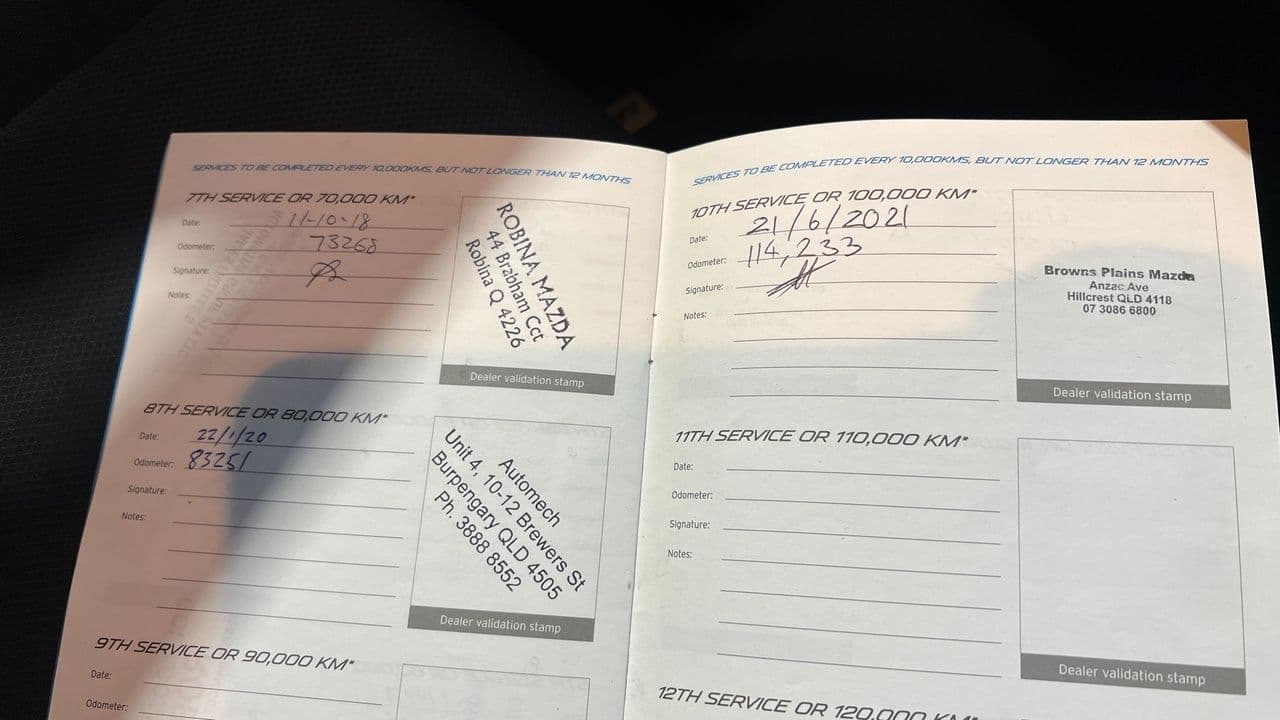 SERVICES TO BE COMPLETED EVERY 10,000KMS, BUT NOT LONGER THAN 12 MONTHS
7TH SERVICE OR 70,000 KM*
Date: 11-10-18
Odometer: 73268
Signature:
Notes:
ROBINA MAZDA
44 Brabham Cct
Robina Q 4226
Dealer validation stamp
8TH SERVICE OR 80,000 KM*
Date: 22/1/20
Odometer: 83251
Signature:
Notes:
Automech
Unit 4, 10-12 Brewers St
Burpengary QLD 4505
Ph. 3888 8552
Dealer validation stamp
9TH SERVICE OR 90,000 KM*
Date:
Odometer:
SERVICES TO BE COMPLETED EVERY 10,000KMS, BUT NOT LONGER THAN 12 MONTHS
10TH SERVICE OR 100,000 KM*
Date: 21/6/2021
Odometer: 114,233
Signature:
Notes:
Browns Plains Mazda
Anzac Ave
Hillcrest QLD 4118
07 3086 6800
Dealer validation stamp
11TH SERVICE OR 110,000 KM*
Date:
Odometer:
Signature:
Notes:
Dealer validation stamp
12TH SERVICE OR 120,000 KM*